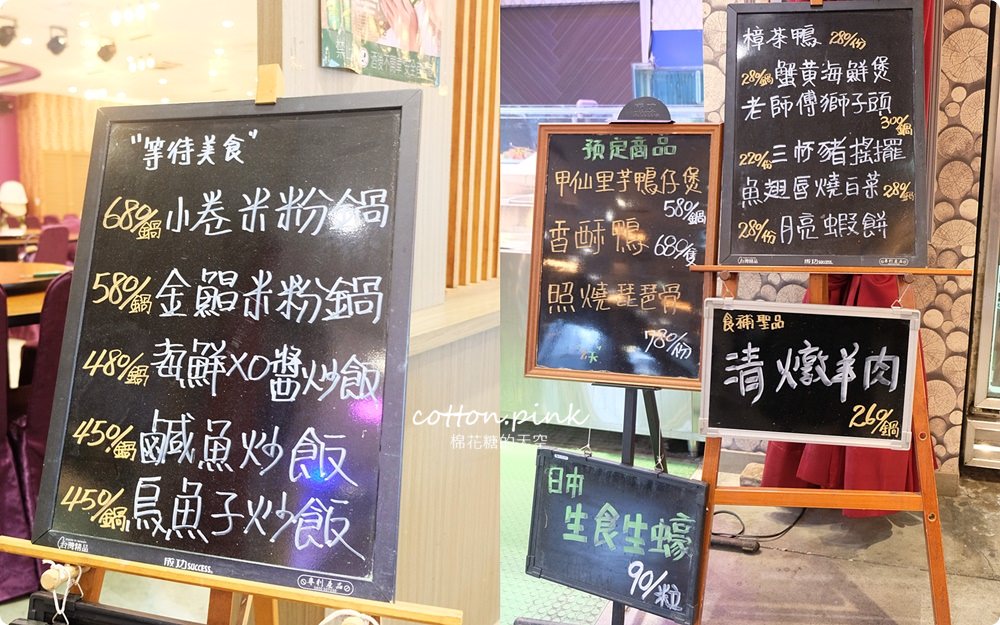 "等待美食"
680/鍋 小卷米粉鍋
580/鍋 金鯧米粉鍋
480/鍋 海鮮XO醬炒飯
450/鍋 鹹魚炒飯
450/鍋 烏魚子炒飯
台灣精品
成功 SUCCESS.
專利產品
預定商品
甲仙里芋鴨仔煲
580/鍋
香酥鴨 680/隻
照燒琵琶骨
780/份
樟茶鴨 280/份
280/鍋 蟹黃海鮮煲
老師傅獅子頭
300/鍋
220/份 三杯豬搖擺
魚翅唇燒白菜 280/鍋
280/份 月亮蝦餅
台灣精品
成功 SUCCESS.
專利產品
食補聖品
清燉羊肉
260/鍋
日本
生食生蠔
90/粒
cotton.pink
棉花糖的天空